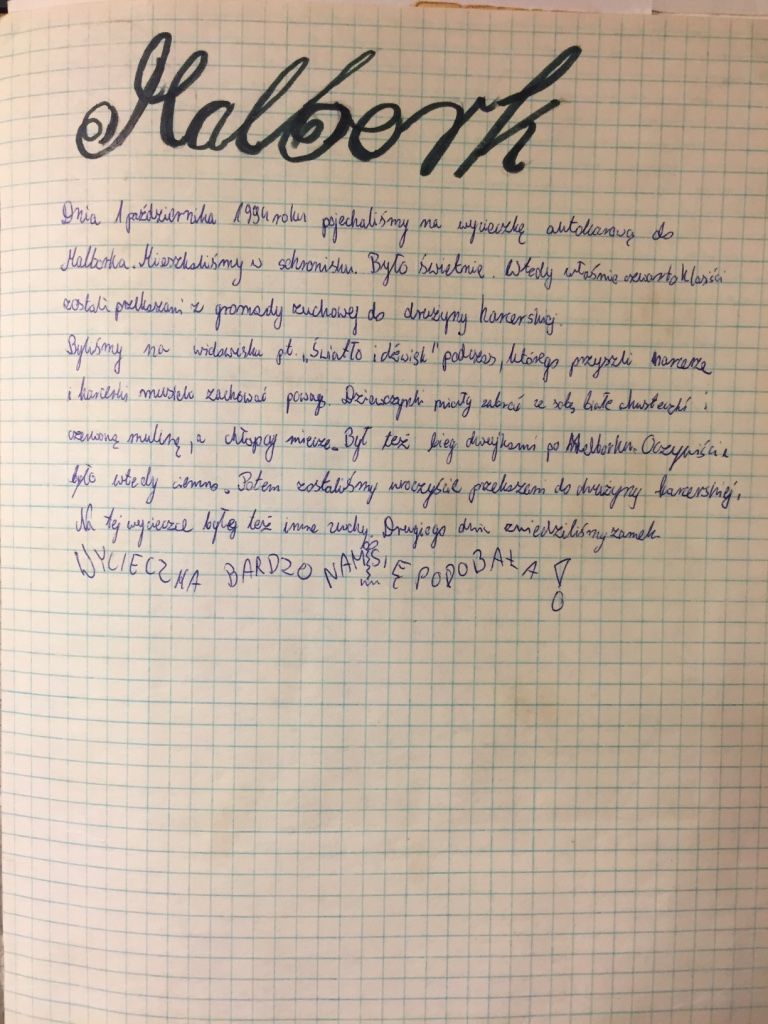 Malbork
Dnia 1 października 1994 roku pojechaliśmy na wycieczkę autokarową do
Malborka. Mieszkaliśmy w schronisku. Było świetnie. Wtedy właśnie czwartoklasiści
zostali przekazani z gromady zuchowej do drużyny harcerskiej.
Byliśmy na widowisku pt. „Światło i dźwięk" podczas, którego przyszli harcerze
i harcerki musieli zachować powagę. Dziewczynki miały zabrać ze sobą białe chusteczki i
czerwoną mulinę, a chłopcy miecze. Był też bieg dwójkami po Malborku. Oczywiście
było wtedy ciemno. Potem zostaliśmy uroczyście przekazani do drużyny harcerskiej.
Na tej wycieczce były też inne zuchy. Drugiego dnia zwiedziliśmy zamek.
WYCIECZKA BARDZO NAM SIĘ PODOBAŁA!